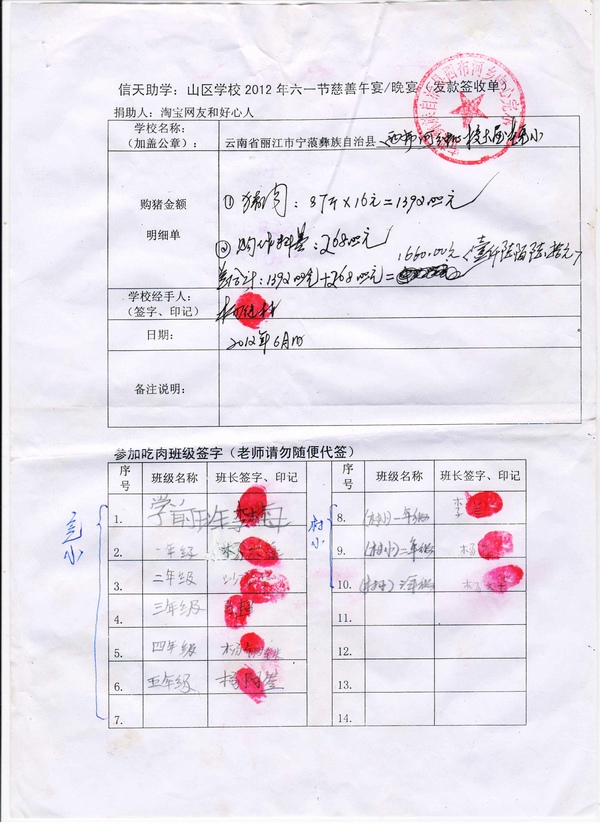 信天助学：山区学校2012年六一节慈善午宴/晚宴（发款签收单）
捐助人：淘宝网友和好心人
学校名称：
（加盖公章）：
云南省丽江市宁蒗彝族自治县
购猪金额
明细单
① 猪肉：87斤×16元=1392.00元
② 购作料量：268.00元
1660.00元（壹仟陆陌陆拾元）
总合计：1392.00元+268.00元=
学校经手人：
（签字、印记）
日期：
2012年6月1日
备注说明：
参加吃肉班级签字（老师请勿随便代签）
序号 班级名称 班长签字、印记 序号 班级名称 班长签字、印记
完小
村小
1. 学前班
8. （村小）一年级
2. 一年级
9. （村小）二年级
3. 二年级
10. （村小）三年级
4. 三年级
11.
5. 四年级
12.
6. 五年级
13.
7.
14.